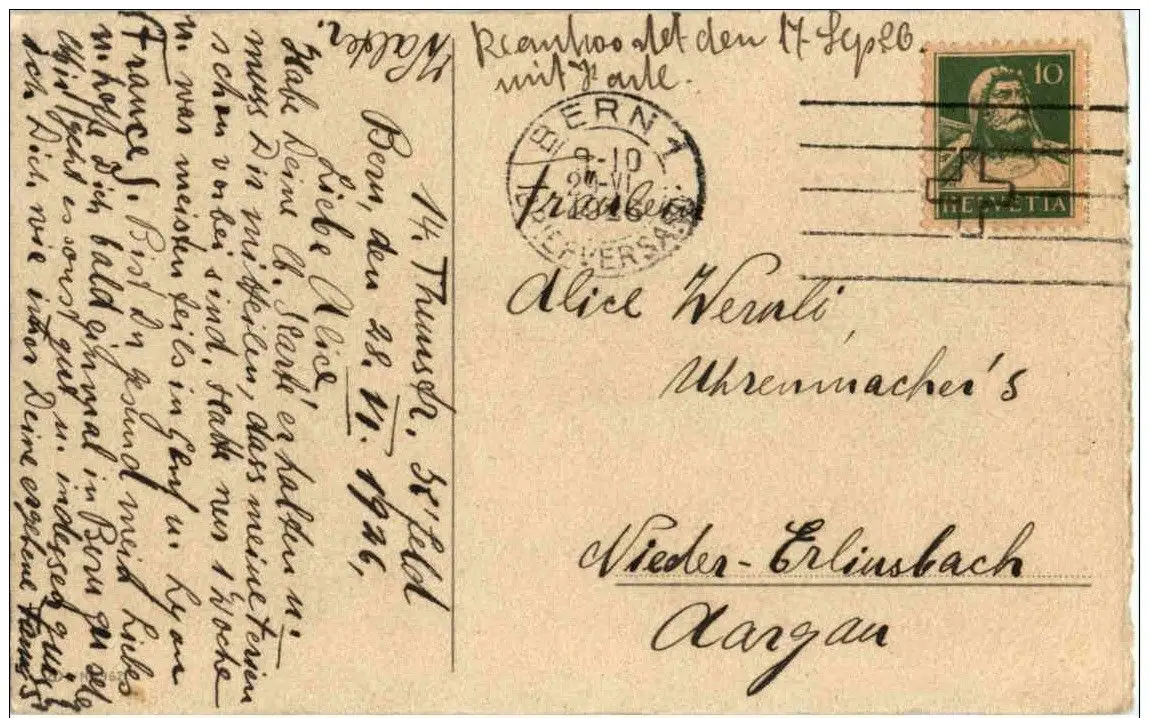 Beantwortet den 17. Sep 26.
mit Karte.
BERN 1
9-10
BRIEFVERSAND
10
HELVETIA
Fräulein
Alice Wernli,
Uhrenmacher's
Nieder-Erlinsbach
Aargau
14. Thunstr. 38' feld
Bern, den 28. VI. 1926,
Liebe Alice!
Habe Deine lb. Karte erhalten u.
muss Dir mitteilen, dass meine Ferien
schon vorbei sind. Hatte nur 1 Woche
u. war meistenteils in Genf u. Lyon
(France). Bist Du gesund mein Liebes
u. hoffe Dich bald einmal in Bern zu seh
Mir geht es sonst gut u. indessen grüsst
Dich wie immer Deine ergebene
Walter.